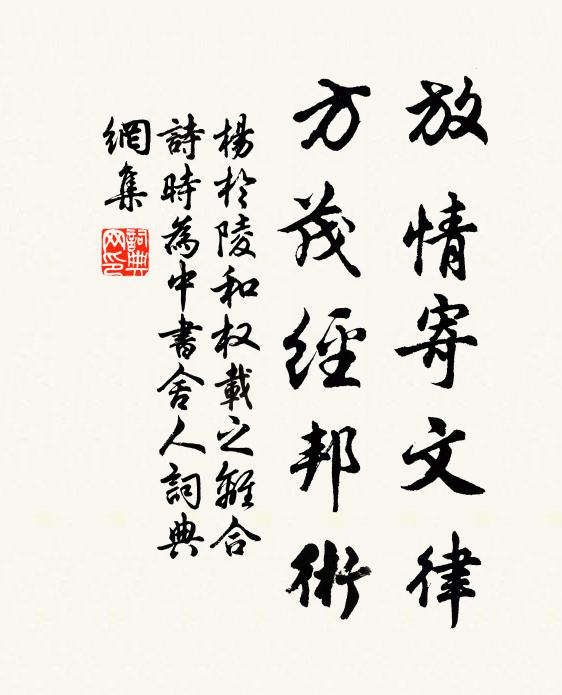 放情寄文律
方茂經邦術
楊於陵和权載之離合
詩時為中書舍人詞典
網集
詞典
网印